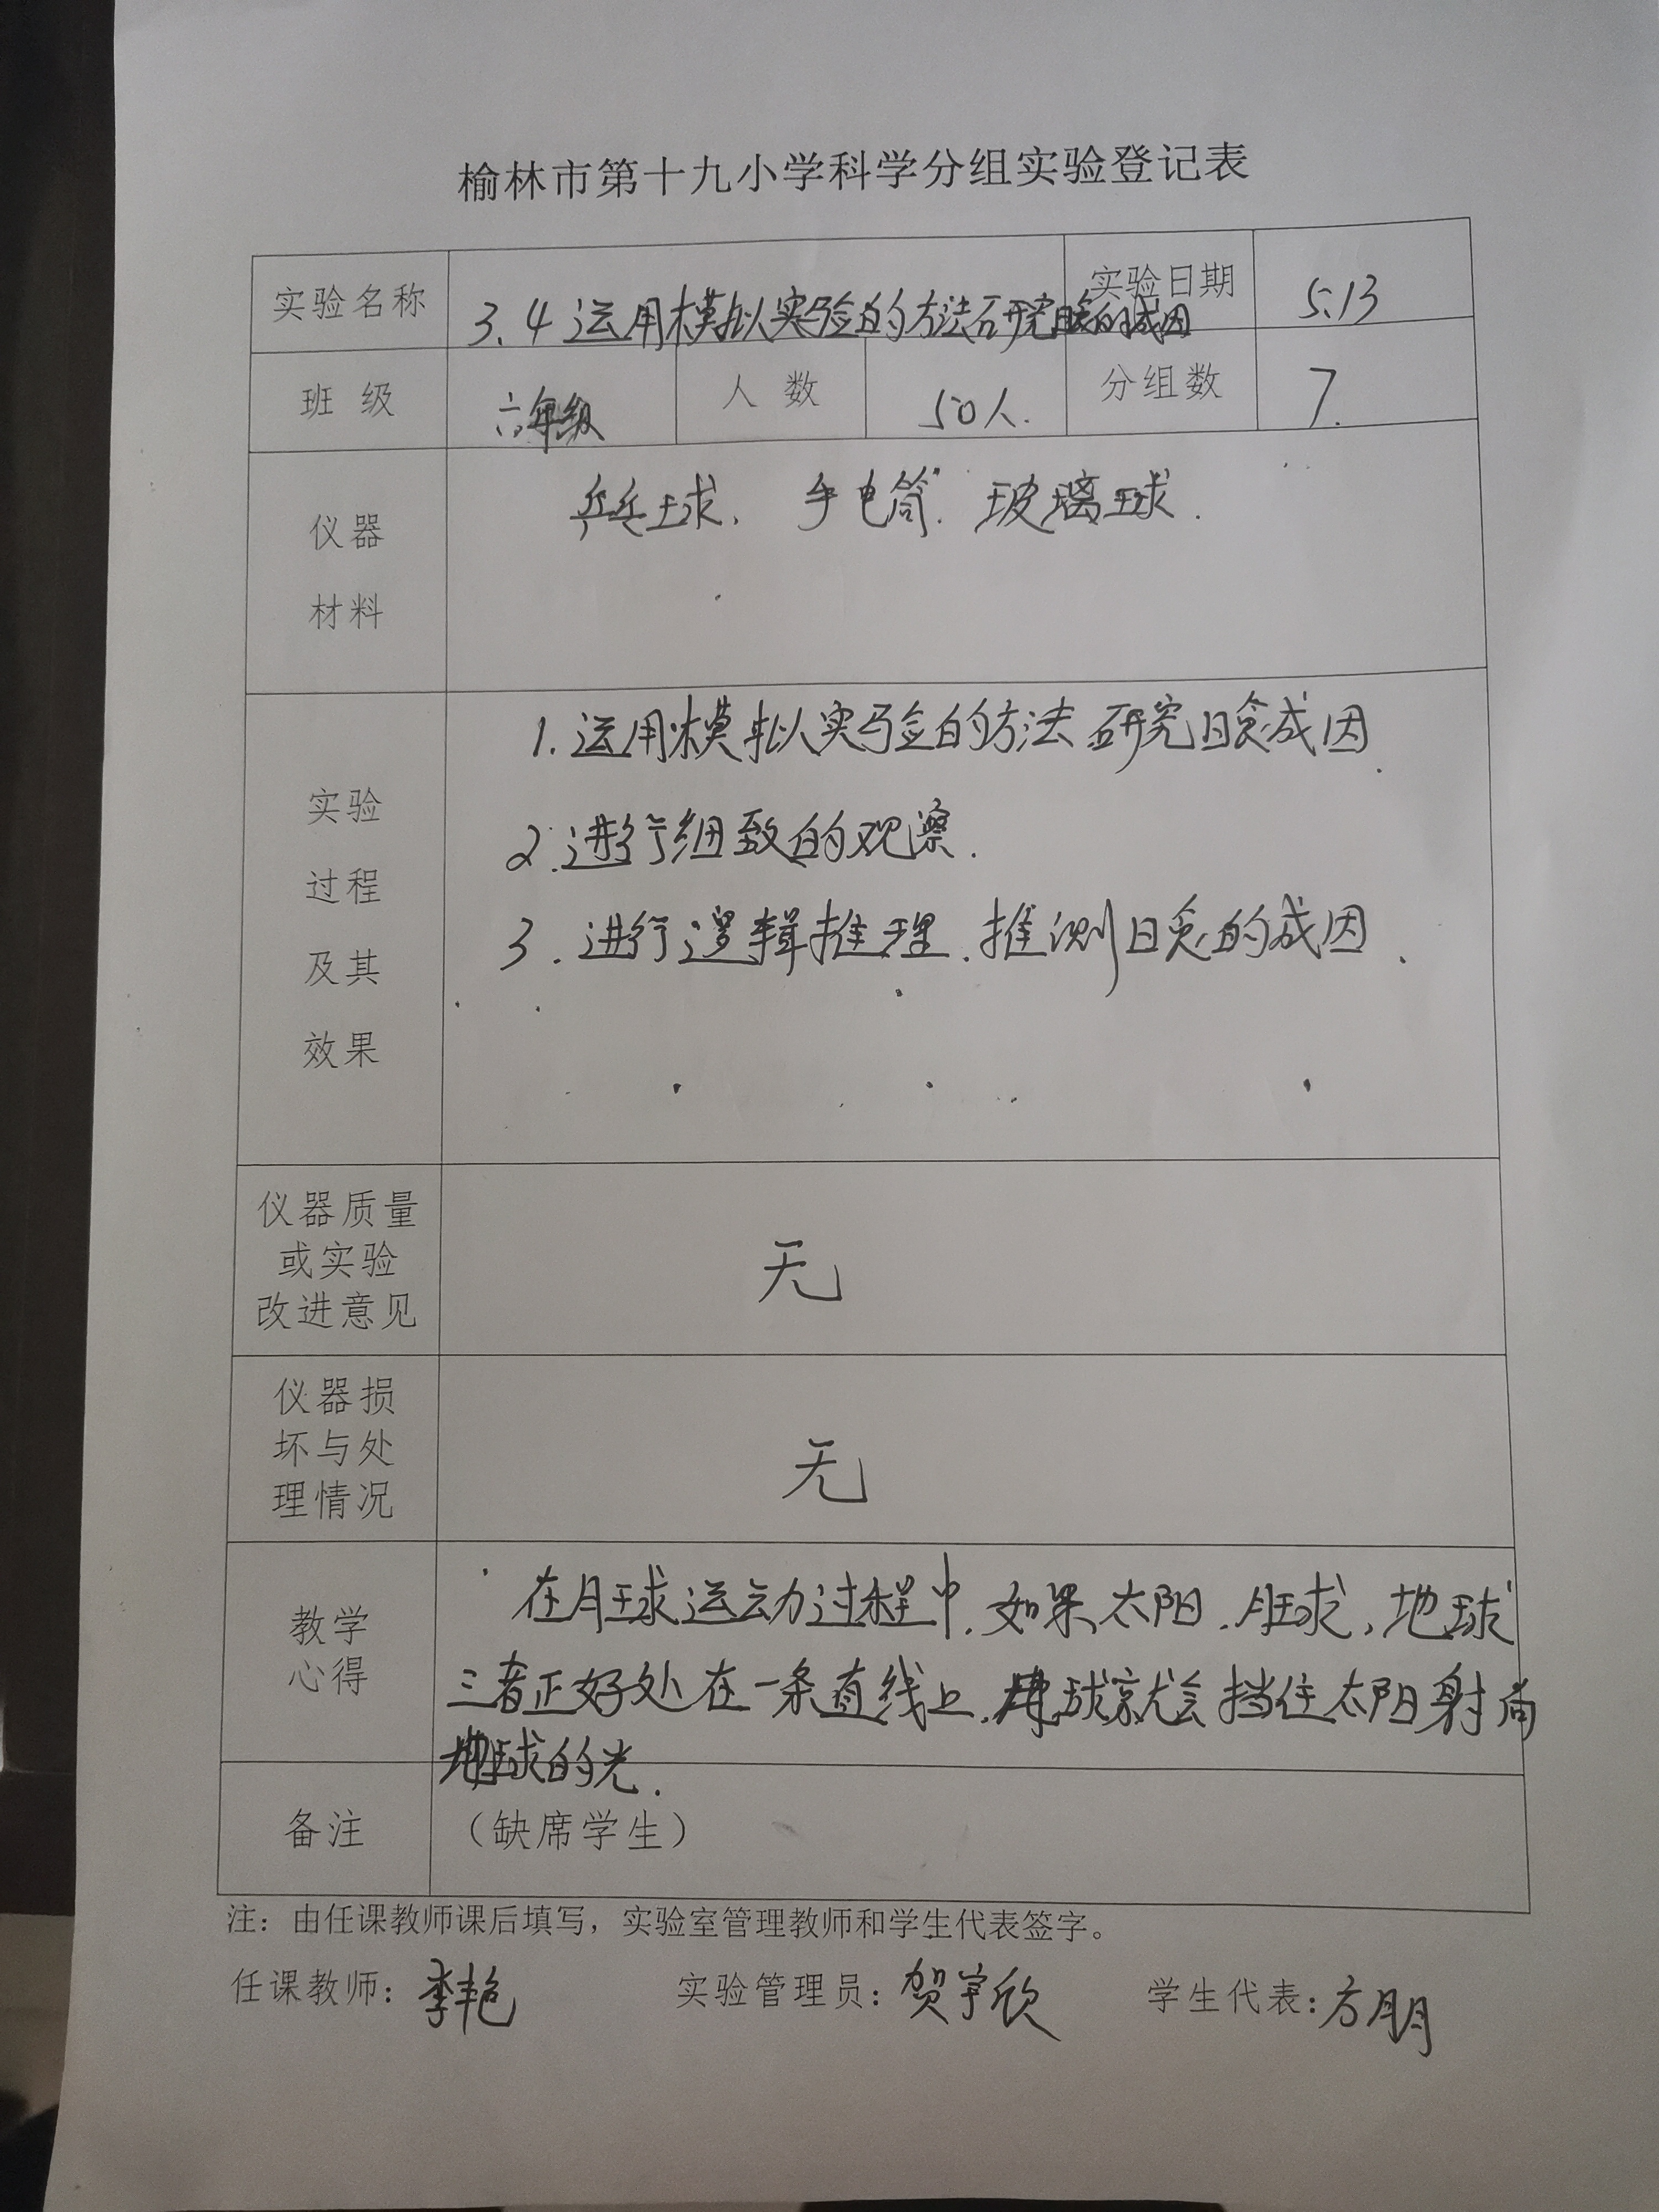 榆林市第十九小学科学分组实验登记表
实验名称 3.4 运用模拟实验的方法研究日食的成因 实验日期 5.13
班级 六年级 人数 50人. 分组数 7.
仪器
材料
乒乓球、手电筒. 玻璃球.
实验
过程
及其
效果
1.运用模拟实验的方法研究日食成因.
2.进行细致的观察.
3.进行逻辑推理.推测日食的成因.
仪器质量
或实验
改进意见
无
仪器损
坏与处
理情况
无
教学
心得
在月球运动过程中,如果太阳、月球、地球
三者正好处在一条直线上,月球就会挡住太阳射向
地球的光.
备注 (缺席学生)
注:由任课教师课后填写,实验室管理教师和学生代表签字。
任课教师:李艳 实验管理员:贺宇欣 学生代表:方朋